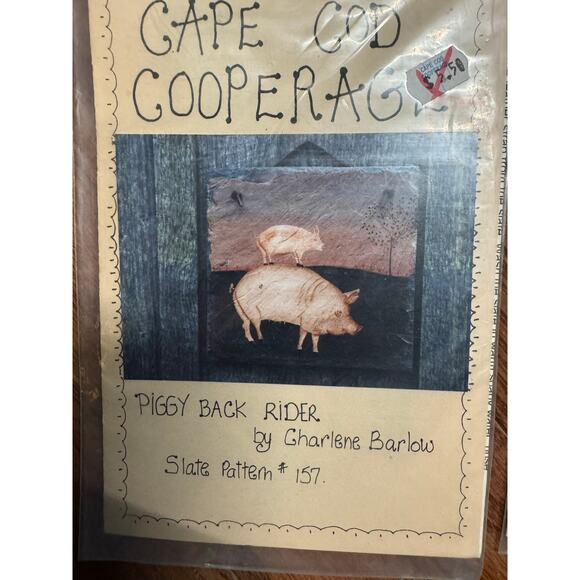 CAPE COD
COOPERAGE
CAPE COD
$5.50
PIGGY BACK RIDER
by Charlene Barlow
Slate Pattern # 157.